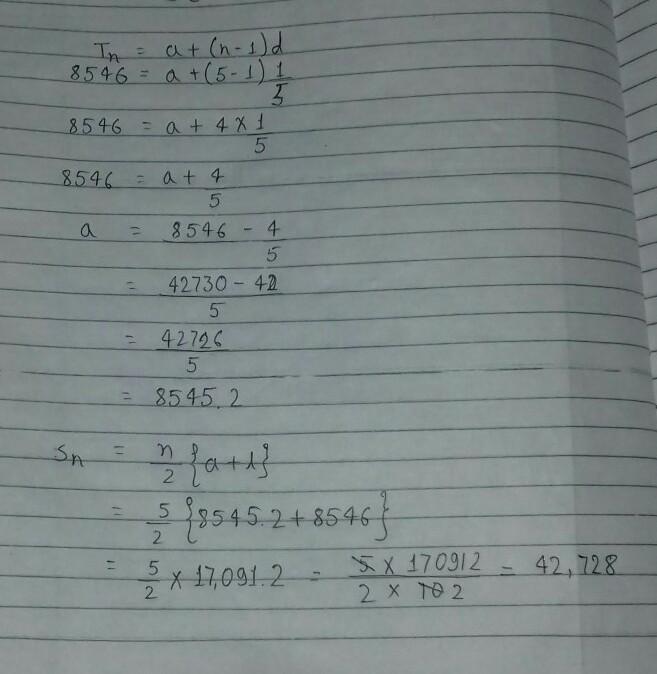 Tn = a + (n - 1) d
8546 = a + (5 - 1) 1/5
8546 = a + 4 × 1/5
8546 = a + 4/5
a = 8546 - 4/5
= 42730 - 4/5
= 42726/5
= 8545.2
Sn = n/2 {a + l}
= 5/2 {8545.2 + 8546}
= 5/2 × 17,091.2 = 5 × 170912/2 × 10 2 = 42,728